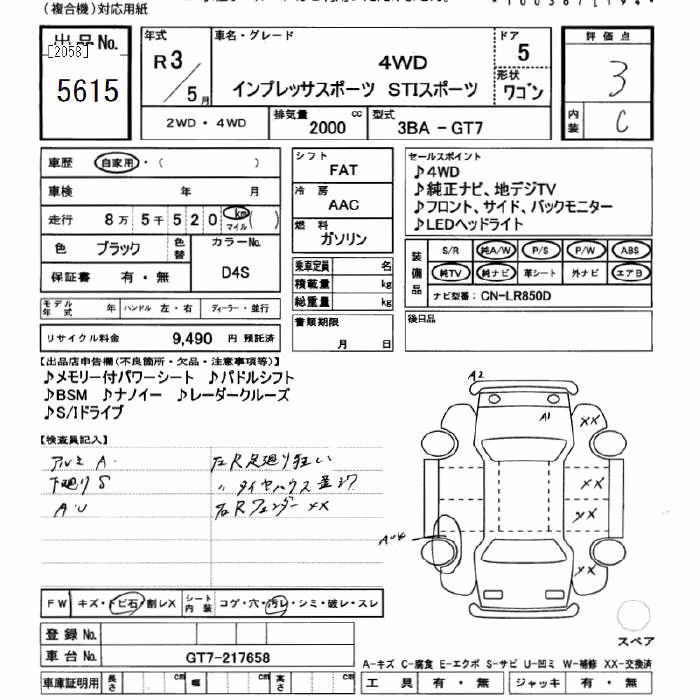 (複合機)対応用紙
出品No.
[2058]
5615
年式
R3/5月
車名・グレード
4WD
インプレッサスポーツ STIスポーツ
ドア
5
形状
ワゴン
評価点
3
内装
C
2WD・4WD
排気量
2000 cc
型式
3BA-GT7
車歴
自家用・( )
車検 年 月
走行 8万5千520 km マイル ( )
色 ブラック 色替
カラーNo.
D4S
保証書 有・無
モデル年式 年 ハンドル 左・右 ディーラー・並行
リサイクル料金 9,490 円 預託済
シフト
FAT
冷房
AAC
燃料
ガソリン
乗車定員 名
積載量 kg
総重量 kg
書類期限
月 日
セールスポイント
♪4WD
♪純正ナビ、地デジTV
♪フロント、サイド、バックモニター
♪LEDヘッドライト
装備品
S/R 純A/W P/S P/W ABS
純TV 純ナビ 革シート 外ナビ エアB
ナビ型番: CN-LR850D
後日品
【出品店申告欄(不良箇所・欠品・注意事項等)】
♪メモリー付パワーシート ♪パドルシフト
♪BSM ♪ナノイー ♪レーダークルーズ
♪S/Iドライブ
【検査員記入】
アルミ A
下廻り S
A・U
右R足廻り狂い
〃 タイヤハウス 歪
右Rフェンダー XX
A2
A1
XX
XX
XX
XX
AU4
FW キズ・トビ石・割レX シート内装 コゲ・穴・汚レ・シミ・破レ・スレ
スペア
登録No.
車台No. GT7-217658
A-キズ C-腐食 E-エクボ S-サビ U-凹ミ W-補修 XX-交換済
車庫証明用 長さ cm 幅 cm 高さ cm
工具 有・無 ジャッキ 有・無